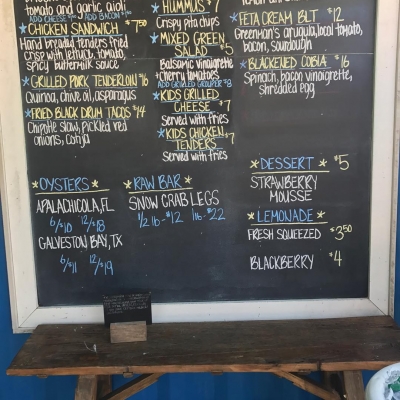 tomato and garlic aioli
ADD CHEESE ADD BACON
★ CHICKEN SANDWICH $7.50
Hand breaded tenders fried
crisp with lettuce, tomato,
spicy buttermilk sauce
★ GRILLED PORK TENDERLOIN $16
Quinoa, chive oil, asparagus
★ FRIED BLACK DRUM TACOS $14
Chipotle slaw, pickled red
onions, cotija
★ HUMMUS ★ $7
Crispy pita chips
★ MIXED GREEN
SALAD $5
Balsamic vinaigrette
Cherry tomatoes
ADD GRILLED GROUPER $8
★ KIDS GRILLED
CHEESE $7
Served with fries
★ KIDS CHICKEN
TENDERS $7
Served with fries
★ FETA CREAM BLT $12
Greenman's arugula, local tomato,
bacon, sourdough
★ BLACKENED COBIA $16
Spinach, bacon vinaigrette,
shredded egg
★ OYSTERS ★
APALACHICOLA, FL
6/$10 12/$18
GALVESTON BAY, TX
6/$11 12/$19
★ RAW BAR ★
SNOW CRAB LEGS
1/2 lb - $12 1 lb - $22
★ DESSERT ★ $5
STRAWBERRY
MOUSSE
★ LEMONADE ★
FRESH SQUEEZED $3.50
BLACKBERRY $4